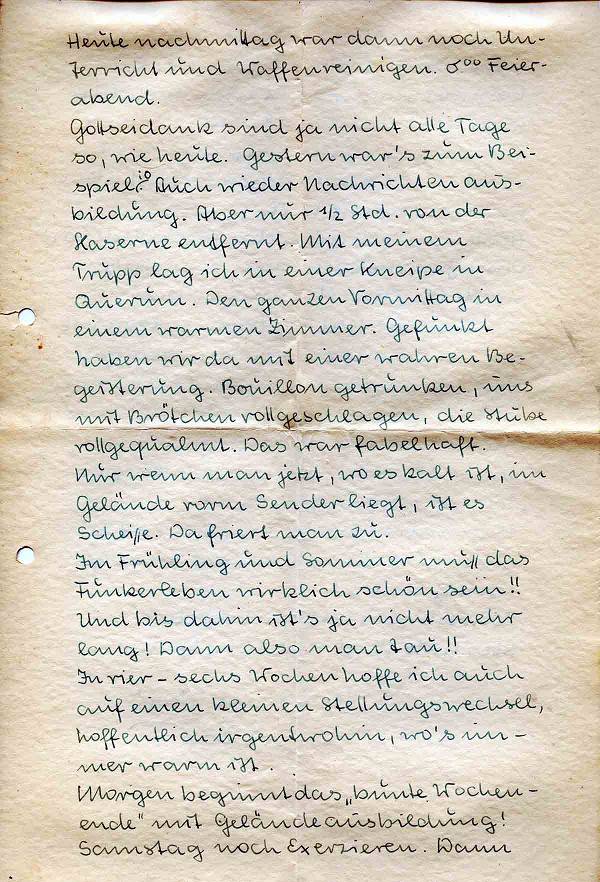 Heute nachmittag war dann noch Un-
terricht und Waffenreinigen. 6⁰⁰ Feier-
abend.
Gottseidank sind ja nicht alle Tage
so, wie heute. Gestern war's zum Bei-
spiel so: Auch wieder Nachrichten aus-
bildung. Aber nur ½ Std. von der
Kaserne entfernt. Mit meinem
Trupp lag ich in einer Kneipe in
Querum. Den ganzen Vormittag in
einem warmen Zimmer. Gefunkt
haben wir da mit einer wahren Be-
geisterung. Bouillon getrunken, uns
mit Brötchen vollgeschlagen, die Stube
vollgequalmt. Das war fabelhaft.
Nur wenn man jetzt, wo es kalt ist, im
Gelände vorm Sender liegt, ist es
Scheiße. Da friert man zu.
Im Frühling und Sommer muß das
Funkerleben wirklich schön sein!!
Und bis dahin ist's ja nicht mehr
lang! Dann also man tau!!
In vier – sechs Wochen hoffe ich auch
auf einen kleinen Stellungswechsel,
hoffentlich irgentwohin, wo's im-
mer warm ist.
Morgen beginnt das „bunte Wochen-
ende" mit Geländeausbildung!
Samstag noch Exerzieren. Dann